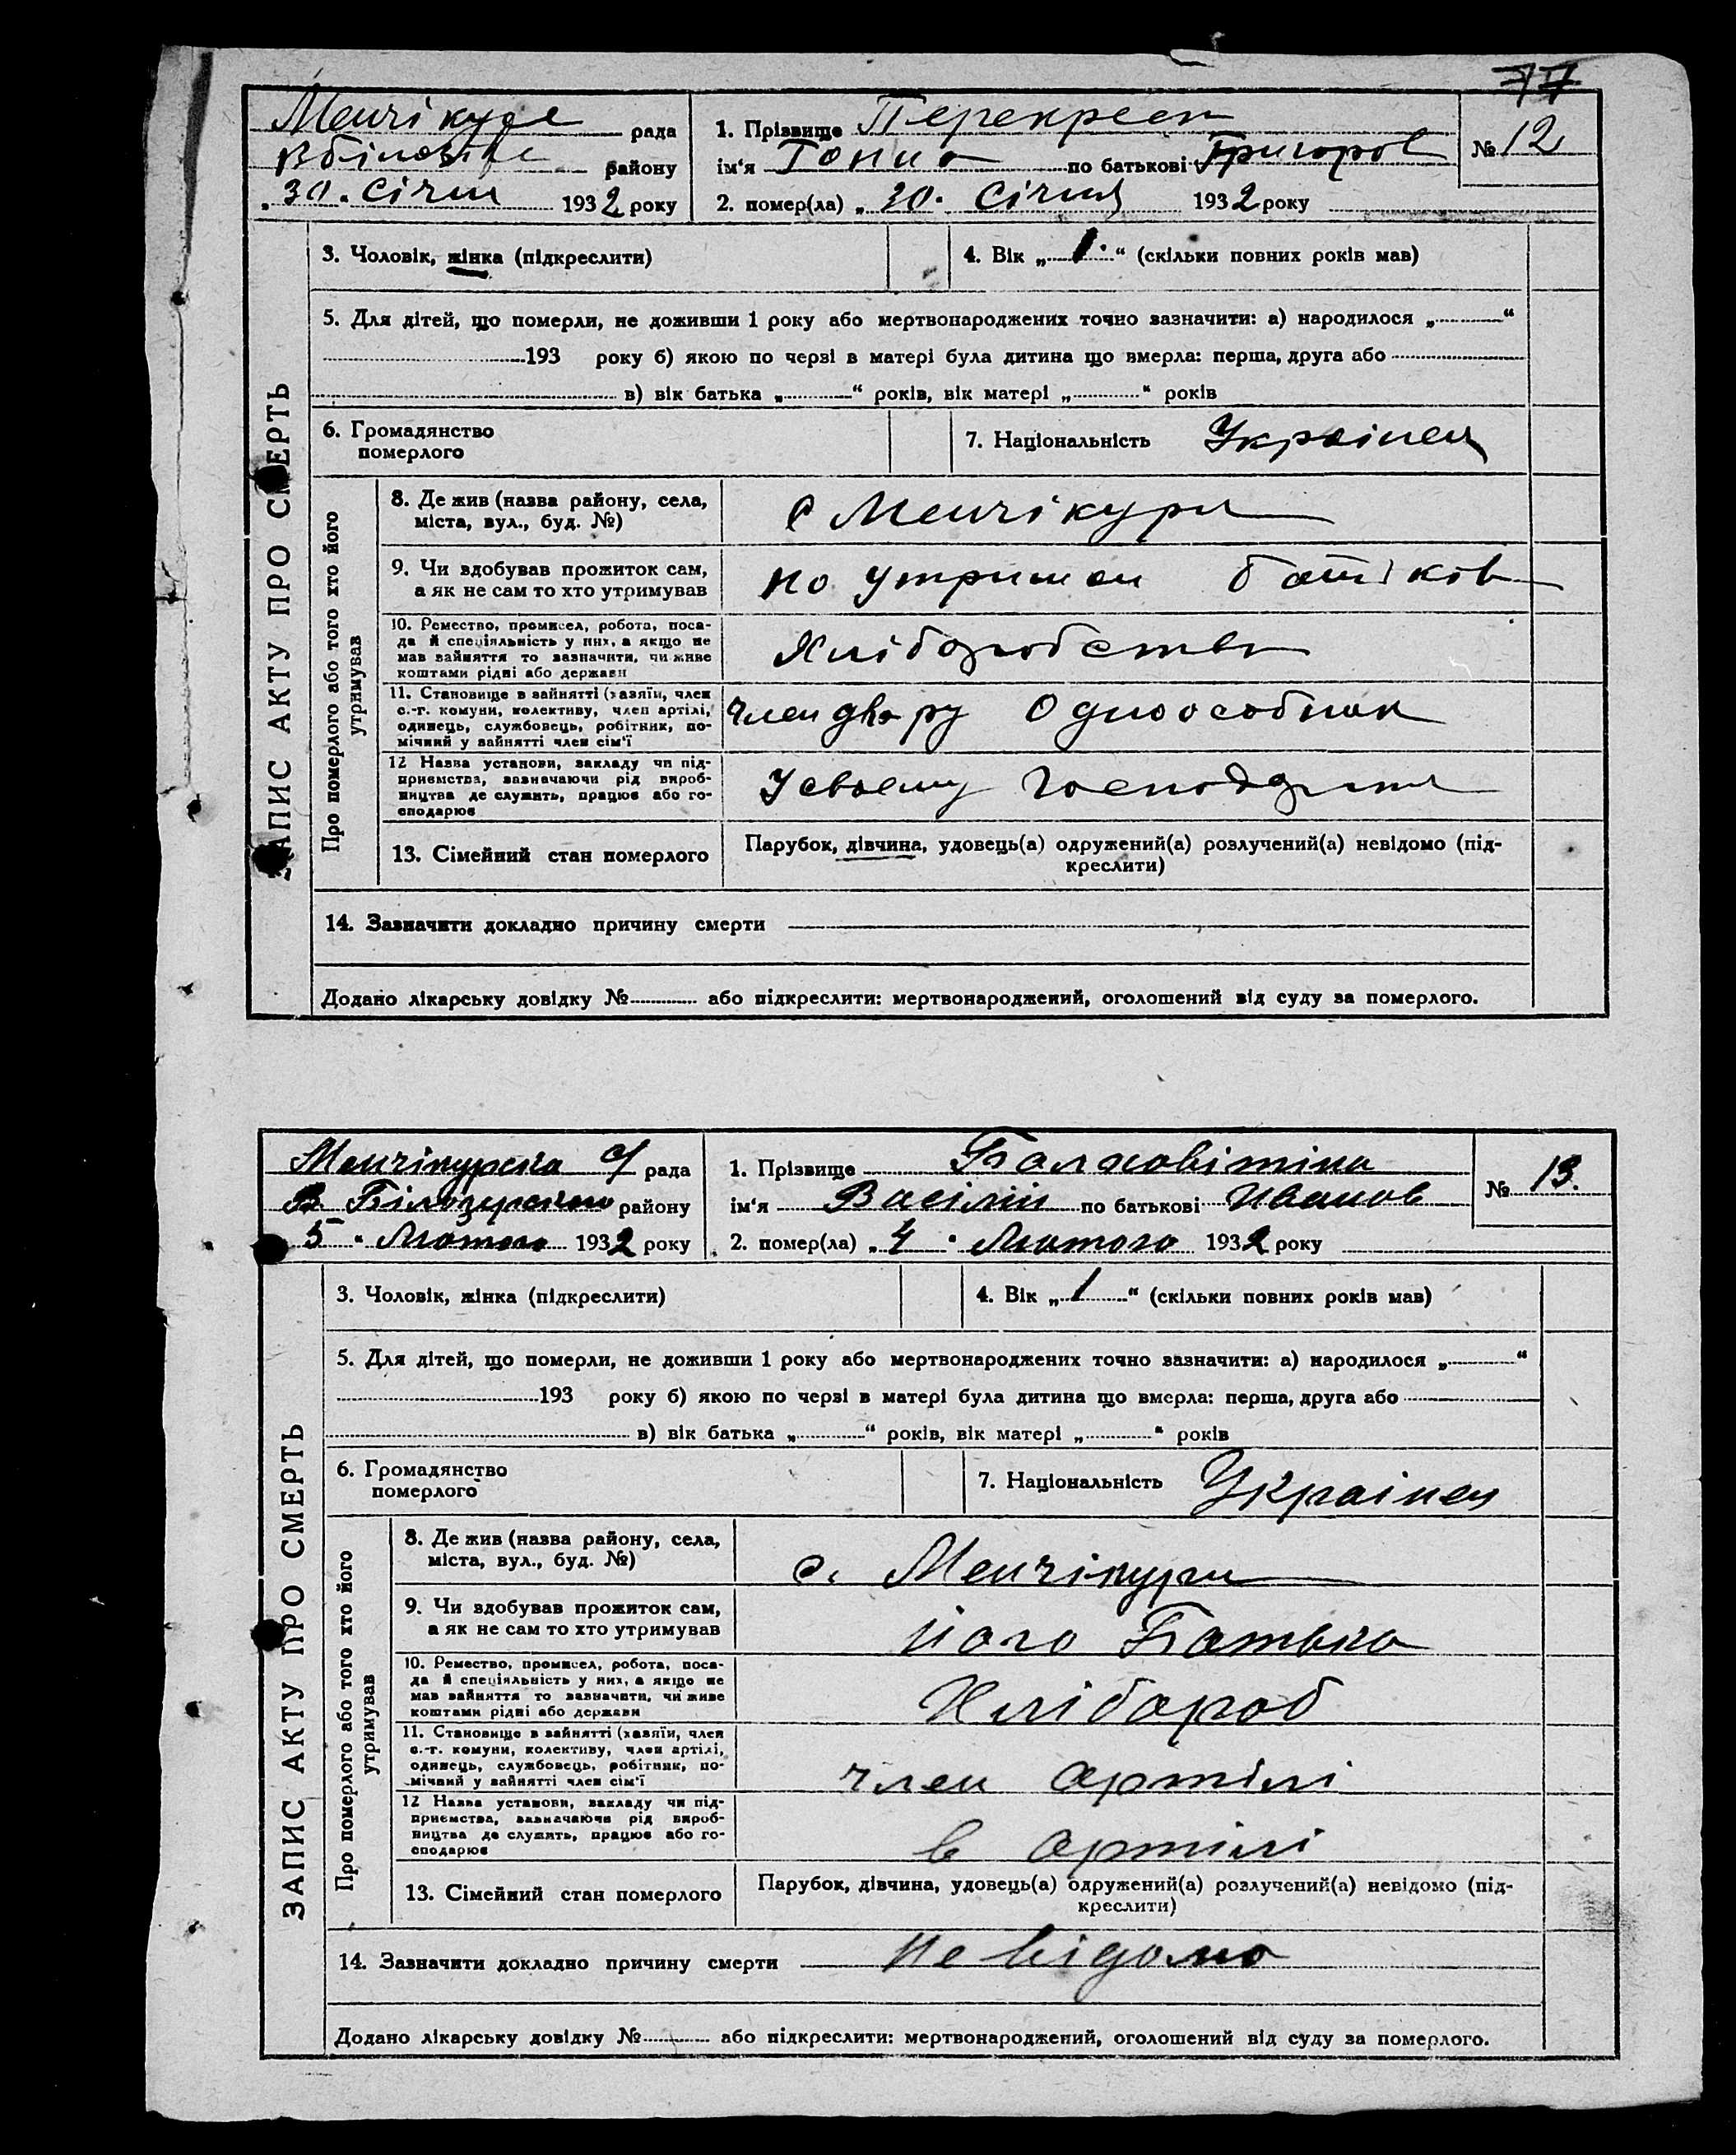 77
Менчікуре рада
В білозірке району
„30. Січня 1932 року
1. Прізвище Перекрест
ім‘я Ганна по батькові Григоров
№ 12
2. помер(ла) „ 30. Січня 1932 року
ЗАПИС АКТУ ПРО СМЕРТЬ
3. Чоловік, жінка (підкреслити)
4. Вік „ 1. “ (скільки повних років мав)
5. Для дітей, що померли, не доживши 1 року або мертвонароджених точно зазначити: а) народилося „ “
193 року б) якою по черзі в матері була дитина що вмерла: перша, друга або
в) вік батька „ “ років, вік матері „ “ років
6. Громадянство
померлого
7. Національність Українец
Про померлого або того хто його
утримував
8. Де жив (назва району, села,
міста, вул., буд. №)
с Менчікури
9. Чи здобував прожиток сам,
а як не сам то хто утримував
на утриман батьків
10. Ремество, промисел, робота, поса-
да й спеціяльність у них, а якщо не
мав зайняття то зазначити, чи живе
коштами рідні або держави
Хліборобство
11. Становище в зайнятті (хазяїн, член
с.-г. комуни, колективу, член артілі,
одинець, службовець, робітник, по-
мічний у зайнятті член сім‘ї
член двору Одноосібник
12 Назва установи, закладу чи під-
приємства, зазначаючи рід вироб-
ництва де служить, працює або го-
сподарює
У своему господарстві
13. Сімейний стан померлого
Парубок, дівчина, удовець(а) одружений(а) розлучений(а) невідомо (під-
креслити)
14. Зазначити докладно причину смерти
Додано лікарську довідку № або підкреслити: мертвонароджений, оголошений від суду за померлого.
Менчікурска с/ рада
В. Білозерського району
5 „ Лютого 1932 року
1. Прізвище
ім‘я Васілій по батькові Иванов
№ 13.
2. помер(ла) „ 4 „ Лютого 1932 року
ЗАПИС АКТУ ПРО СМЕРТЬ
3. Чоловік, жінка (підкреслити)
4. Вік „ 1 “ (скільки повних років мав)
5. Для дітей, що померли, не доживши 1 року або мертвонароджених точно зазначити: а) народилося „ “
193 року б) якою по черзі в матері була дитина що вмерла: перша, друга або
в) вік батька „ “ років, вік матері „ “ років
6. Громадянство
померлого
7. Національність Українец
Про померлого або того хто його
утримував
8. Де жив (назва району, села,
міста, вул., буд. №)
с. Менчікури
9. Чи здобував прожиток сам,
а як не сам то хто утримував
його Батько
10. Ремество, промисел, робота, поса-
да й спеціяльність у них, а якщо не
мав зайняття то зазначити, чи живе
коштами рідні або держави
Хлібороб
11. Становище в зайнятті (хазяїн, член
с.-г. комуни, колективу, член артілі,
одинець, службовець, робітник, по-
мічний у зайнятті член сім‘ї
член артілі
12 Назва установи, закладу чи під-
приємства, зазначаючи рід вироб-
ництва де служить, працює або го-
сподарює
в артілі
13. Сімейний стан померлого
Парубок, дівчина, удовець(а) одружений(а) розлучений(а) невідомо (під-
креслити)
14. Зазначити докладно причину смерти Не відомо
Додано лікарську довідку № або підкреслити: мертвонароджений, оголошений від суду за померлого.